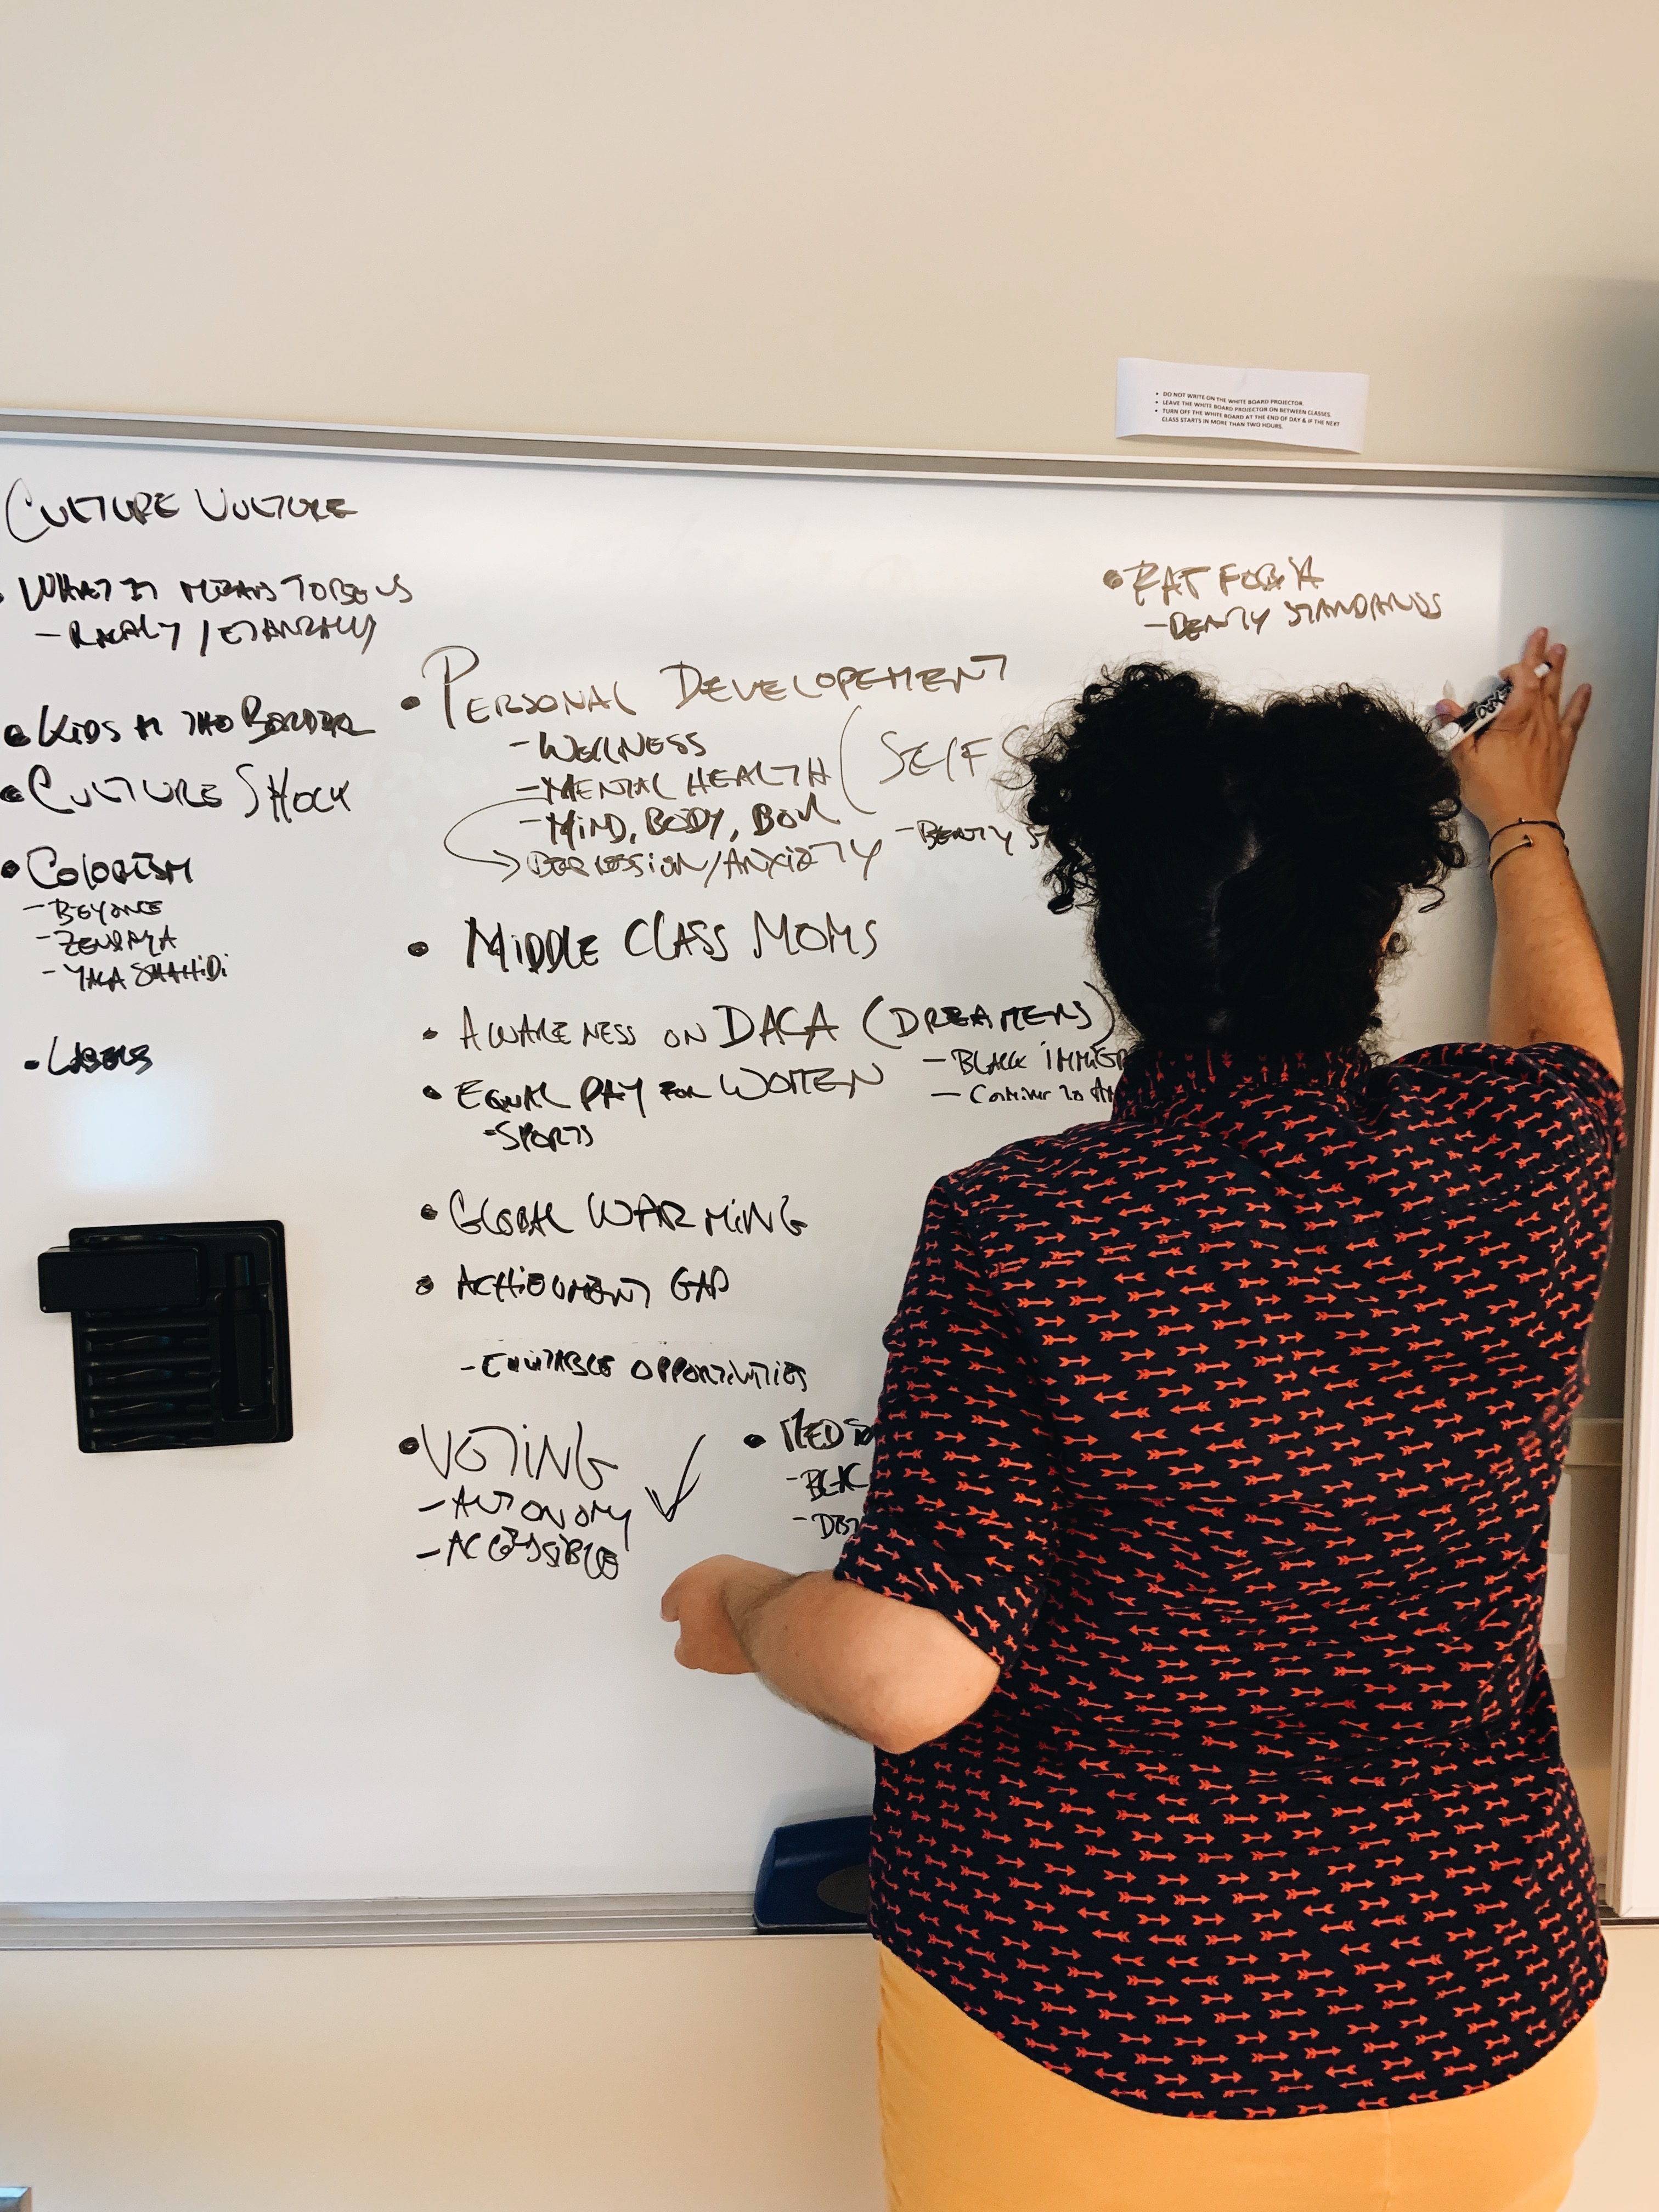 • DO NOT WRITE ON THE WHITE BOARD PROJECTOR.
• LEAVE THE WHITE BOARD PROJECTOR ON BETWEEN CLASSES.
• TURN OFF THE WHITE BOARD AT THE END OF DAY & IF THE NEXT
CLASS STARTS IN MORE THAN TWO HOURS.
CULTURE VULTURE
• WHAT IT MEANS TO BE US
- RACIALLY / ETHNICALLY
• KIDS AT THE BORDER
• CULTURE SHOCK
• COLORISM
- BEYONCE
- ZENDAYA
- YARA SHAHIDI
• LABELS
• PERSONAL DEVELOPEMENT
- WELLNESS
- MENTAL HEALTH ( SELF
- MIND, BODY, SOUL
DEPRESSION/ANXIETY - BEAUTY
• MIDDLE CLASS MOMS
• AWARENESS ON DACA (DREAMERS)
- BLACK
- Coming to
• EQUAL PAY FOR WOMEN
- SPORTS
• GLOBAL WARMING
• ACHIEVEMENT GAP
- EQUITABLE OPPORTUNITIES
• VOTING
- AUTONOMY
- ACCESSIBLE
•
• FAT FOBIA
- BEAUTY STANDARDS
EXPO